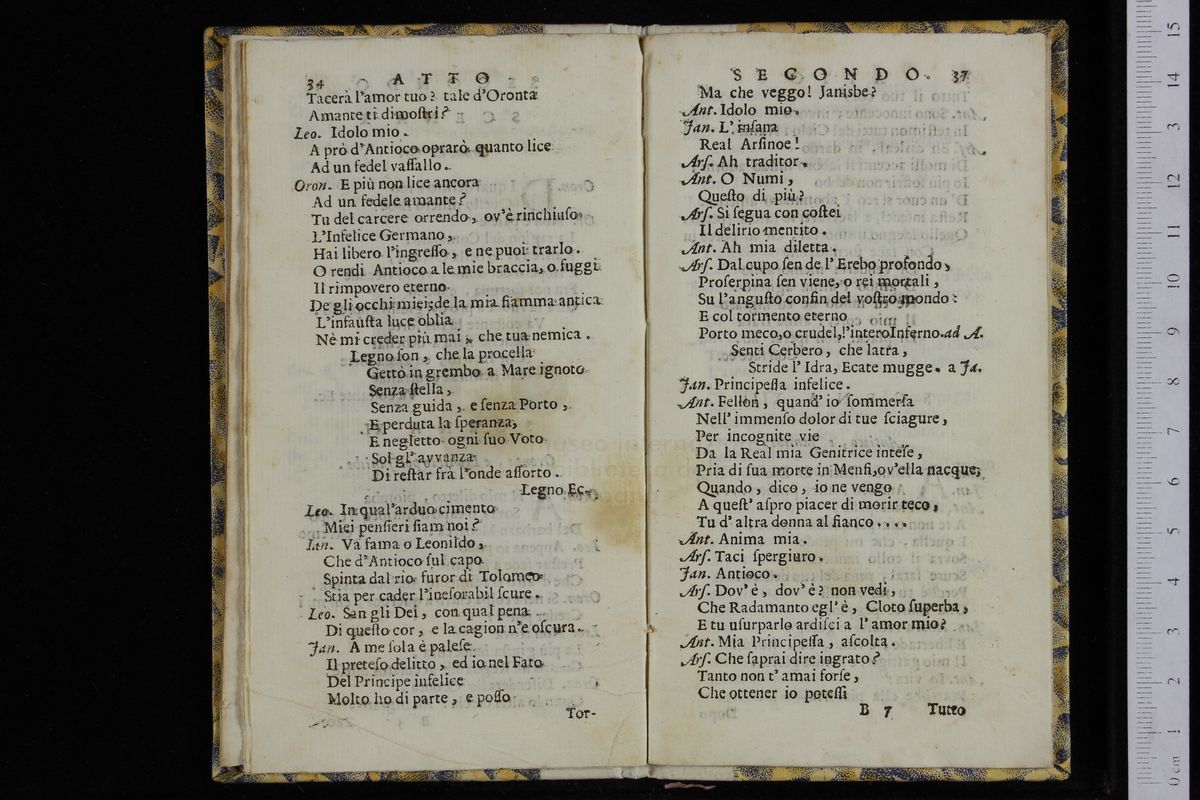 34 ATTO
Tacerà l'amor tuo? tale d'Oronta
Amante ti dimoſtri?
Leo. Idolo mio.
A prò d'Antioco oprarò quanto lice
Ad un fedel vaſſallo.
Oron. E più non lice ancora
Ad un fedele amante?
Tu del carcere orrendo, ov'è rinchiuſo
L'Infelice Germano,
Hai libero l'ingreſſo, e ne puoi trarlo.
O rendi Antioco a le mie braccia, o fuggi
Il rimpovero eterno
De gli occhi miei; de la mia fiamma antica
L'infauſta luce oblia
Nè mi creder più mai, che tua nemica.
Legno ſon, che la procella
Gettò in grembo a Mare ignoto
Senza ſtella,
Senza guida, e ſenza Porto,
E perduta la ſperanza,
E negletto ogni ſuo Voto
Sol gl' avvanza
Di reſtar frà l'onde aſſorto.
Legno Ec.
Leo. In qual'arduo cimento
Miei penſieri ſiam noi?
Ian. Va fama o Leonildo,
Che d'Antioco ſul capo
Spinta dal rio furor di Tolomeo
Stia per cader l'ineſorabil ſcure.
Leo. San gli Dei, con qual pena
Di queſto cor, e la cagion n'e oſcura.
Jan. A me ſola è paleſe
Il preteſo delitto, ed io nel Fato
Del Principe infelice
Molto ho di parte, e poſſo
Tor-
SECONDO. 37
Ma che veggo! Janisbe?
Ant. Idolo mio.
Jan. L'inſana
Real Arſinoe!
Arſ. Ah traditor.
Ant. O Numi,
Queſto di più?
Arſ. Si ſegua con coſtei
Il delirio mentito.
Ant. Ah mia diletta.
Arſ. Dal cupo ſen de l'Erebo profondo,
Proſerpina ſen viene, o rei mortali,
Su l'anguſto confin del voſtro mondo:
E col tormento eterno
Porto meco, o crudel, l'intero Inferno. ad A.
Senti Cerbero, che latra,
Stride l'Idra, Ecate mugge. a Ja.
Jan. Principeſſa infelice.
Ant. Fellon, quand' io ſommerſa
Nell' immenſo dolor di tue ſciagure,
Per incognite vie
Da la Real mia Genitrice inteſe,
Pria di ſua morte in Menfi, ov'ella nacque;
Quando, dico, io ne vengo
A queſt' aſpro piacer di morir teco,
Tu d' altra donna al fianco....
Ant. Anima mia.
Arſ. Taci ſpergiuro.
Jan. Antioco.
Arſ. Dov' è, dov' è? non vedi,
Che Radamanto egl' è, Cloto ſuperba,
E tu uſurparlo ardiſci a l' amor mio?
Ant. Mia Principeſſa, aſcolta.
Arſ. Che ſaprai dire ingrato?
Tanto non t' amai forſe,
Che ottener io poteſſi
B 7 Tutto